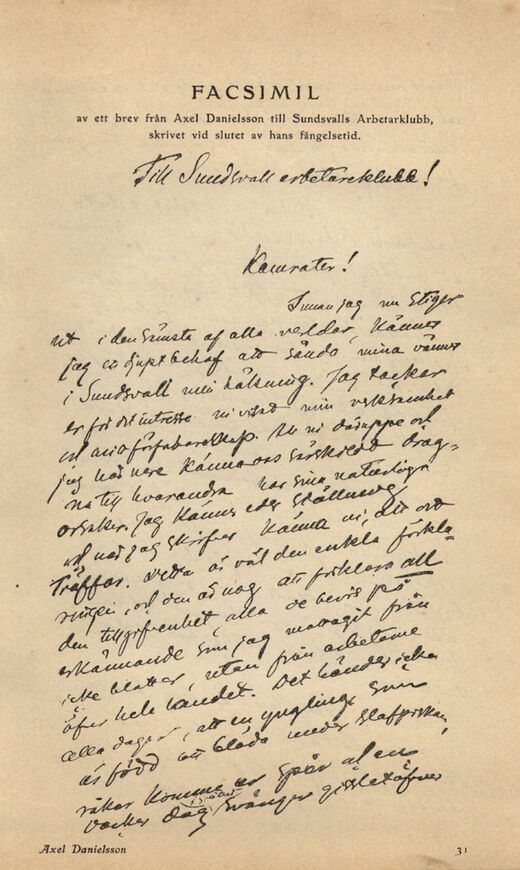 FACSIMIL
av ett brev från Axel Danielsson till Sundsvalls Arbetarklubb,
skrivet vid slutet av hans fängelsetid.
Till Sundsvall arbetareklubb!
Kamrater!
Innan jag nu stiger
ut i den sämsta af alla verldar, känner
jag ett djupt behof att sända mina vänner
i Sundsvall min hälsning. Jag tackar
er för det intresse ni visat min verksamhet
och mitt författarskap. Att ni däruppe och
jag här nere känna oss särskildt drag-
na till hvarandra har sina naturliga
orsaker. Jag känner eder ställning,
och när jag skrifver känna ni, att ord
träffar. Detta är väl den enkla förkla-
ringen, och den är nog att förklara all
den tillgifvenhet alla de bevis på
erkännande som jag mottagit från
icke blott er, utan från arbetarne
öfver hela landet. Det händer icke
alla dagar, att en yngling, som
är född att blöda under slafpiskan,
råkar komma er spår al en
vacker dag svänger gisslet öfver
Axel Danielsson
31